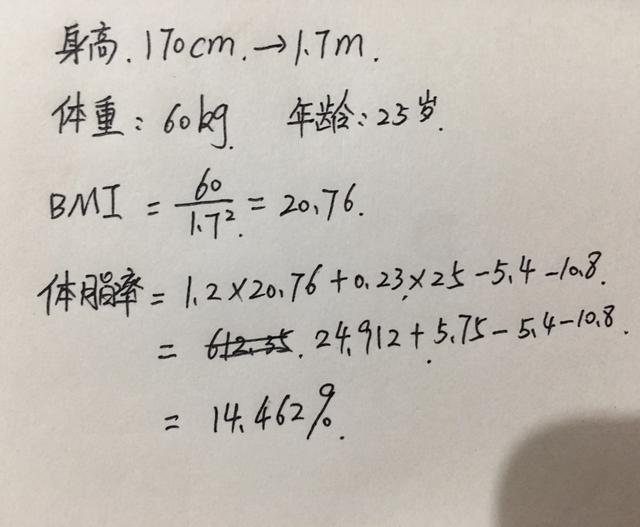 身高.170cm.→1.7m.
体重:60kg. 年龄:25岁.
BMI = 60/1.7² = 20.76.
体脂率 = 1.2×20.76+0.23×25-5.4-10.8.
= 612.35. 24.912+5.75-5.4-10.8.
= 14.462%.